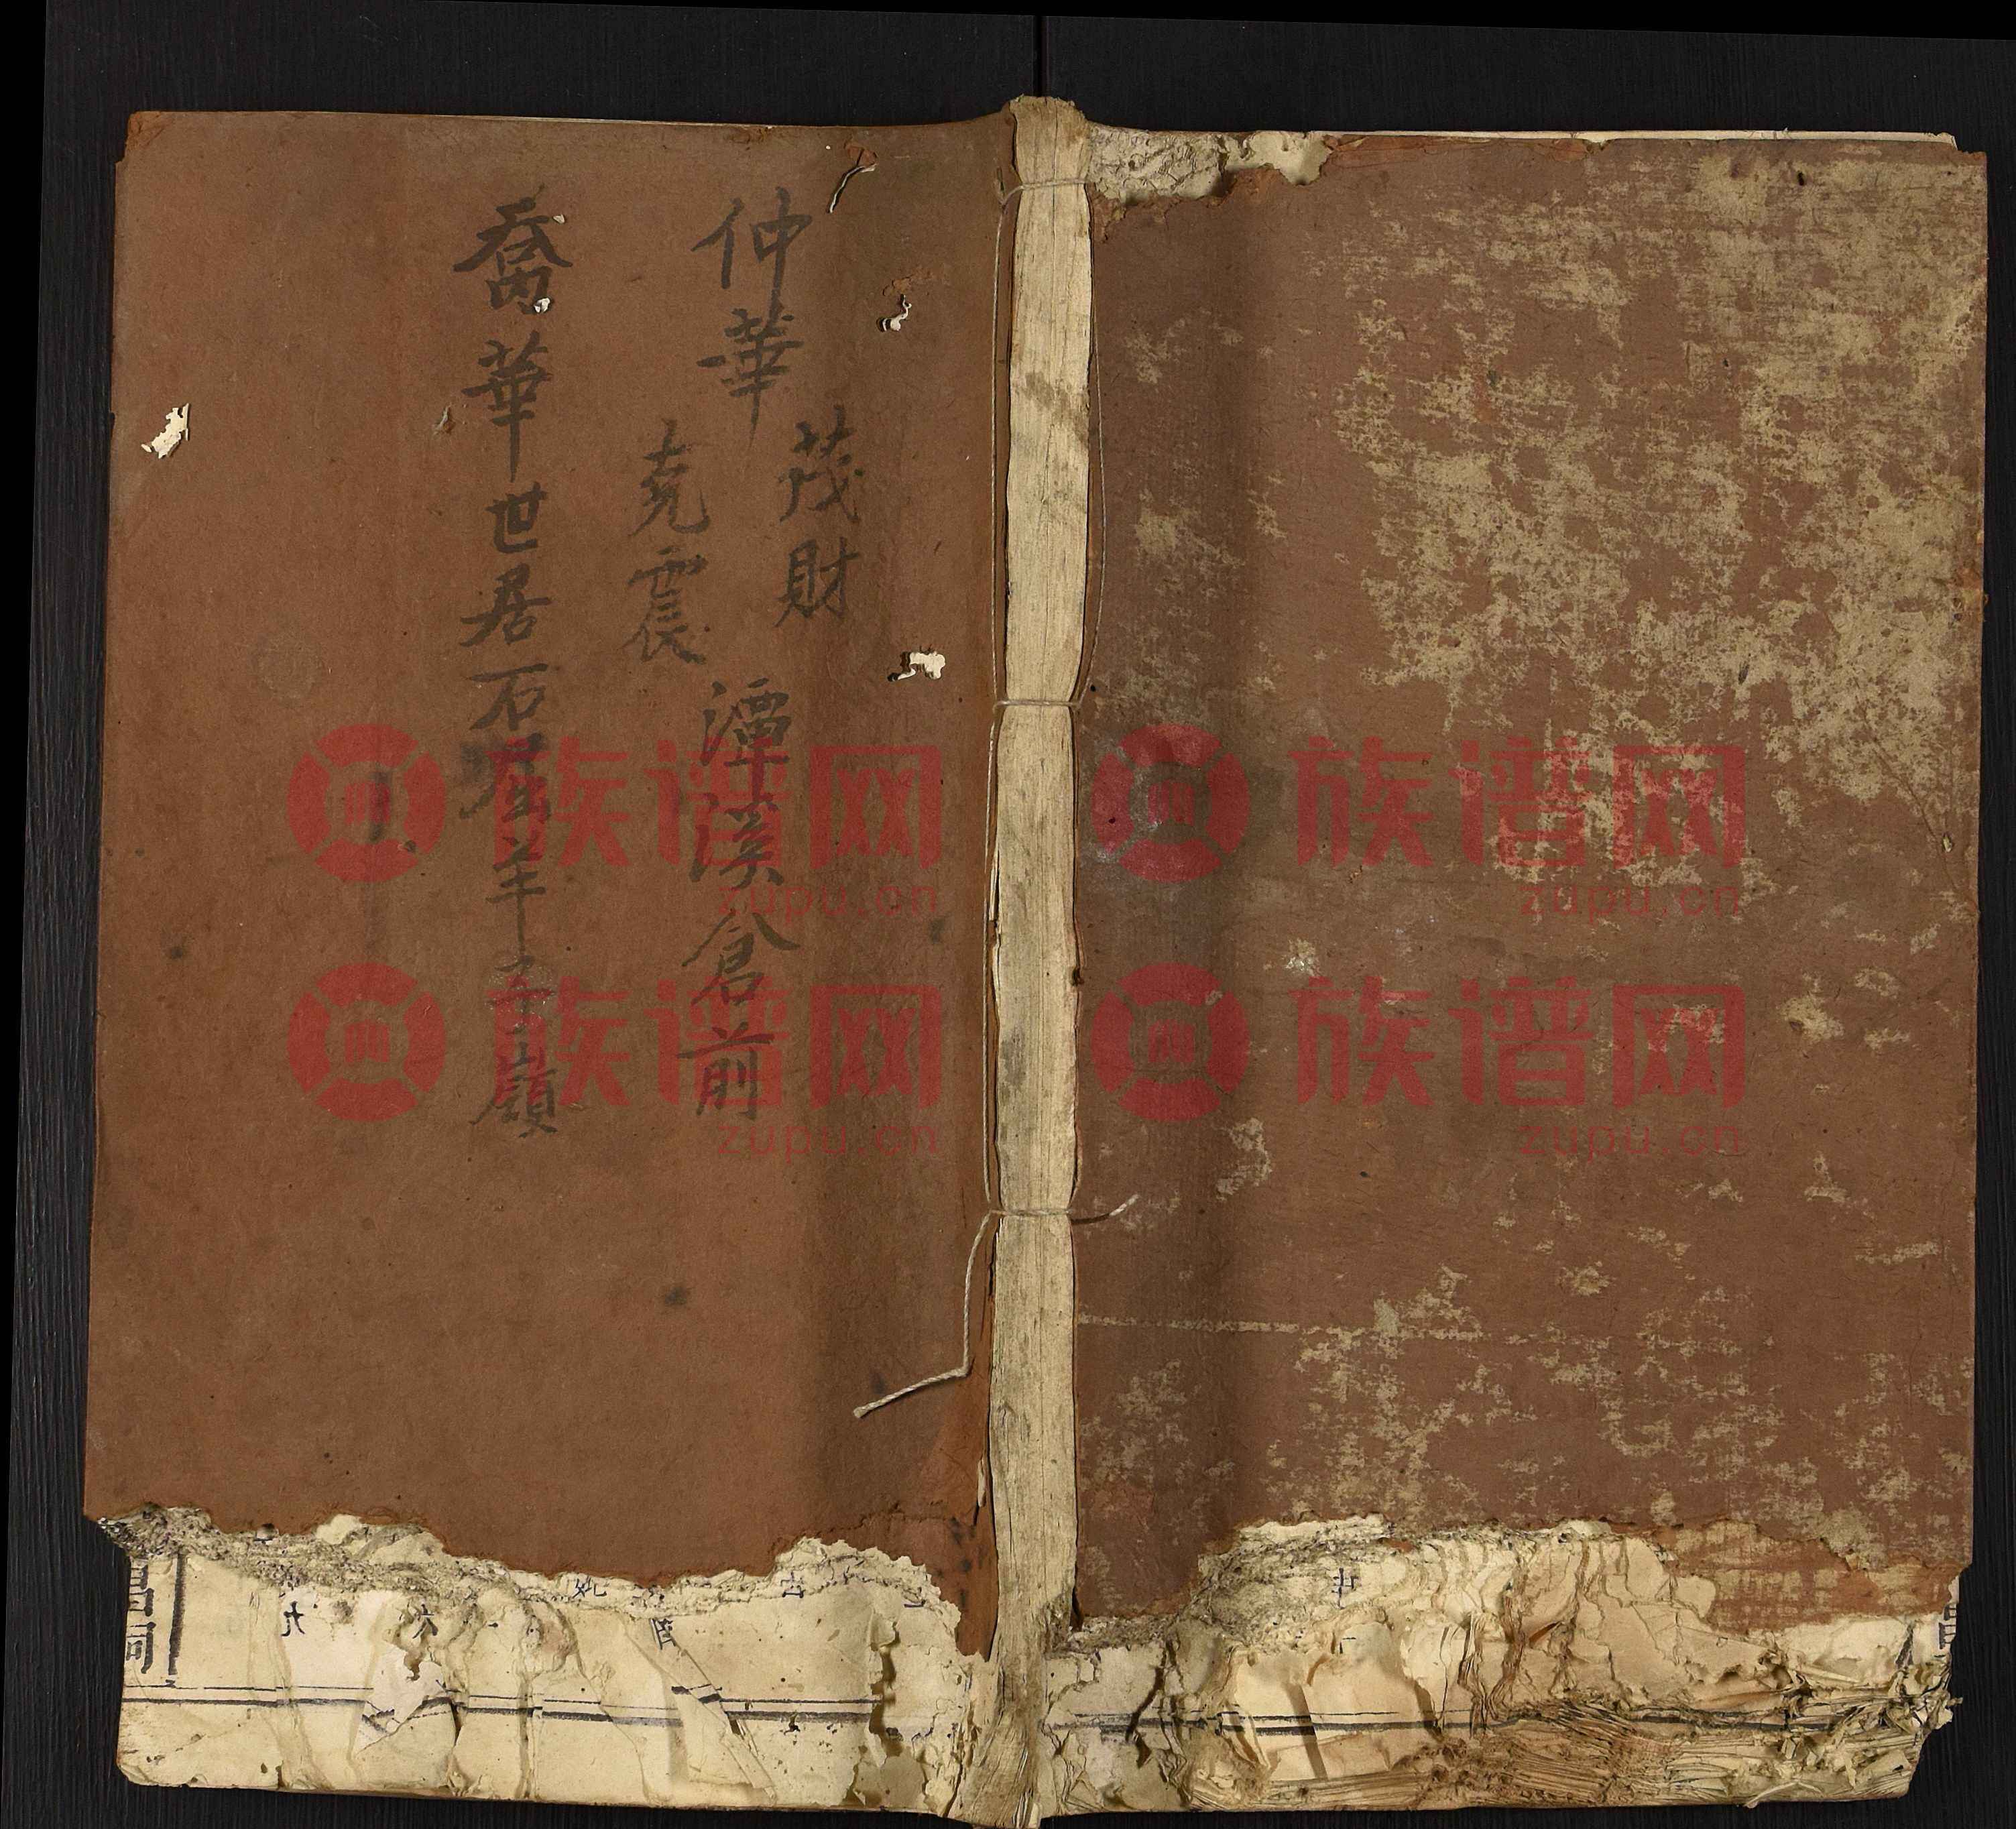 仲華
茂財
克震
潭溪倉前
喬華世居石屋羊子嶺
族谱网
zupu.cn
族谱网
zupu.cn
族谱网
zupu.cn
族谱网
zupu.cn
九
六